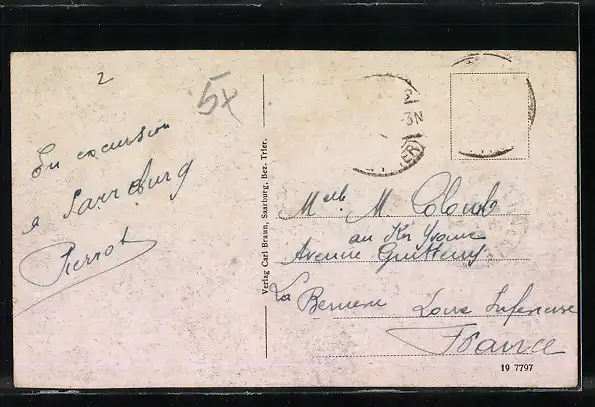 2
5x
En excursion
a Sarreburg
Pierrot
Verlag Carl Braun, Saarburg, Bez. Trier.
3N
Melle M. Colomb
au Ker Yvonne
Avenue
La Bernerie Loire Inferieure
France
19 7797